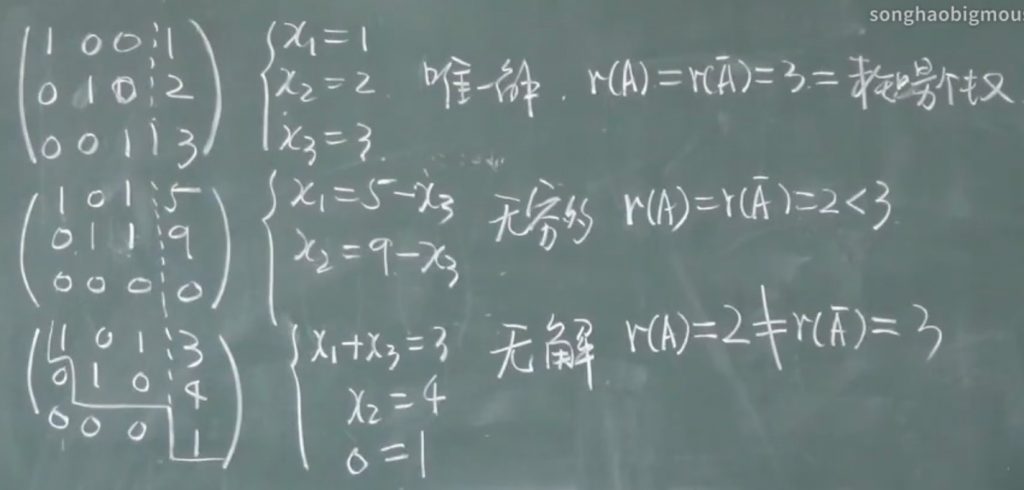 songhaobigmou
1 0 0 1
0 1 0 2
0 0 1 3
x₁=1
x₂=2
x₃=3
唯一解. r(A)=r(Ā)=3=未知量个数
1 0 1 5
0 1 1 9
0 0 0 0
x₁=5-x₃
x₂=9-x₃
无穷多 r(A)=r(Ā)=2<3
1 0 1 3
0 1 0 4
0 0 0 1
x₁+x₃=3
x₂=4
0=1
无解 r(A)=2≠r(Ā)=3